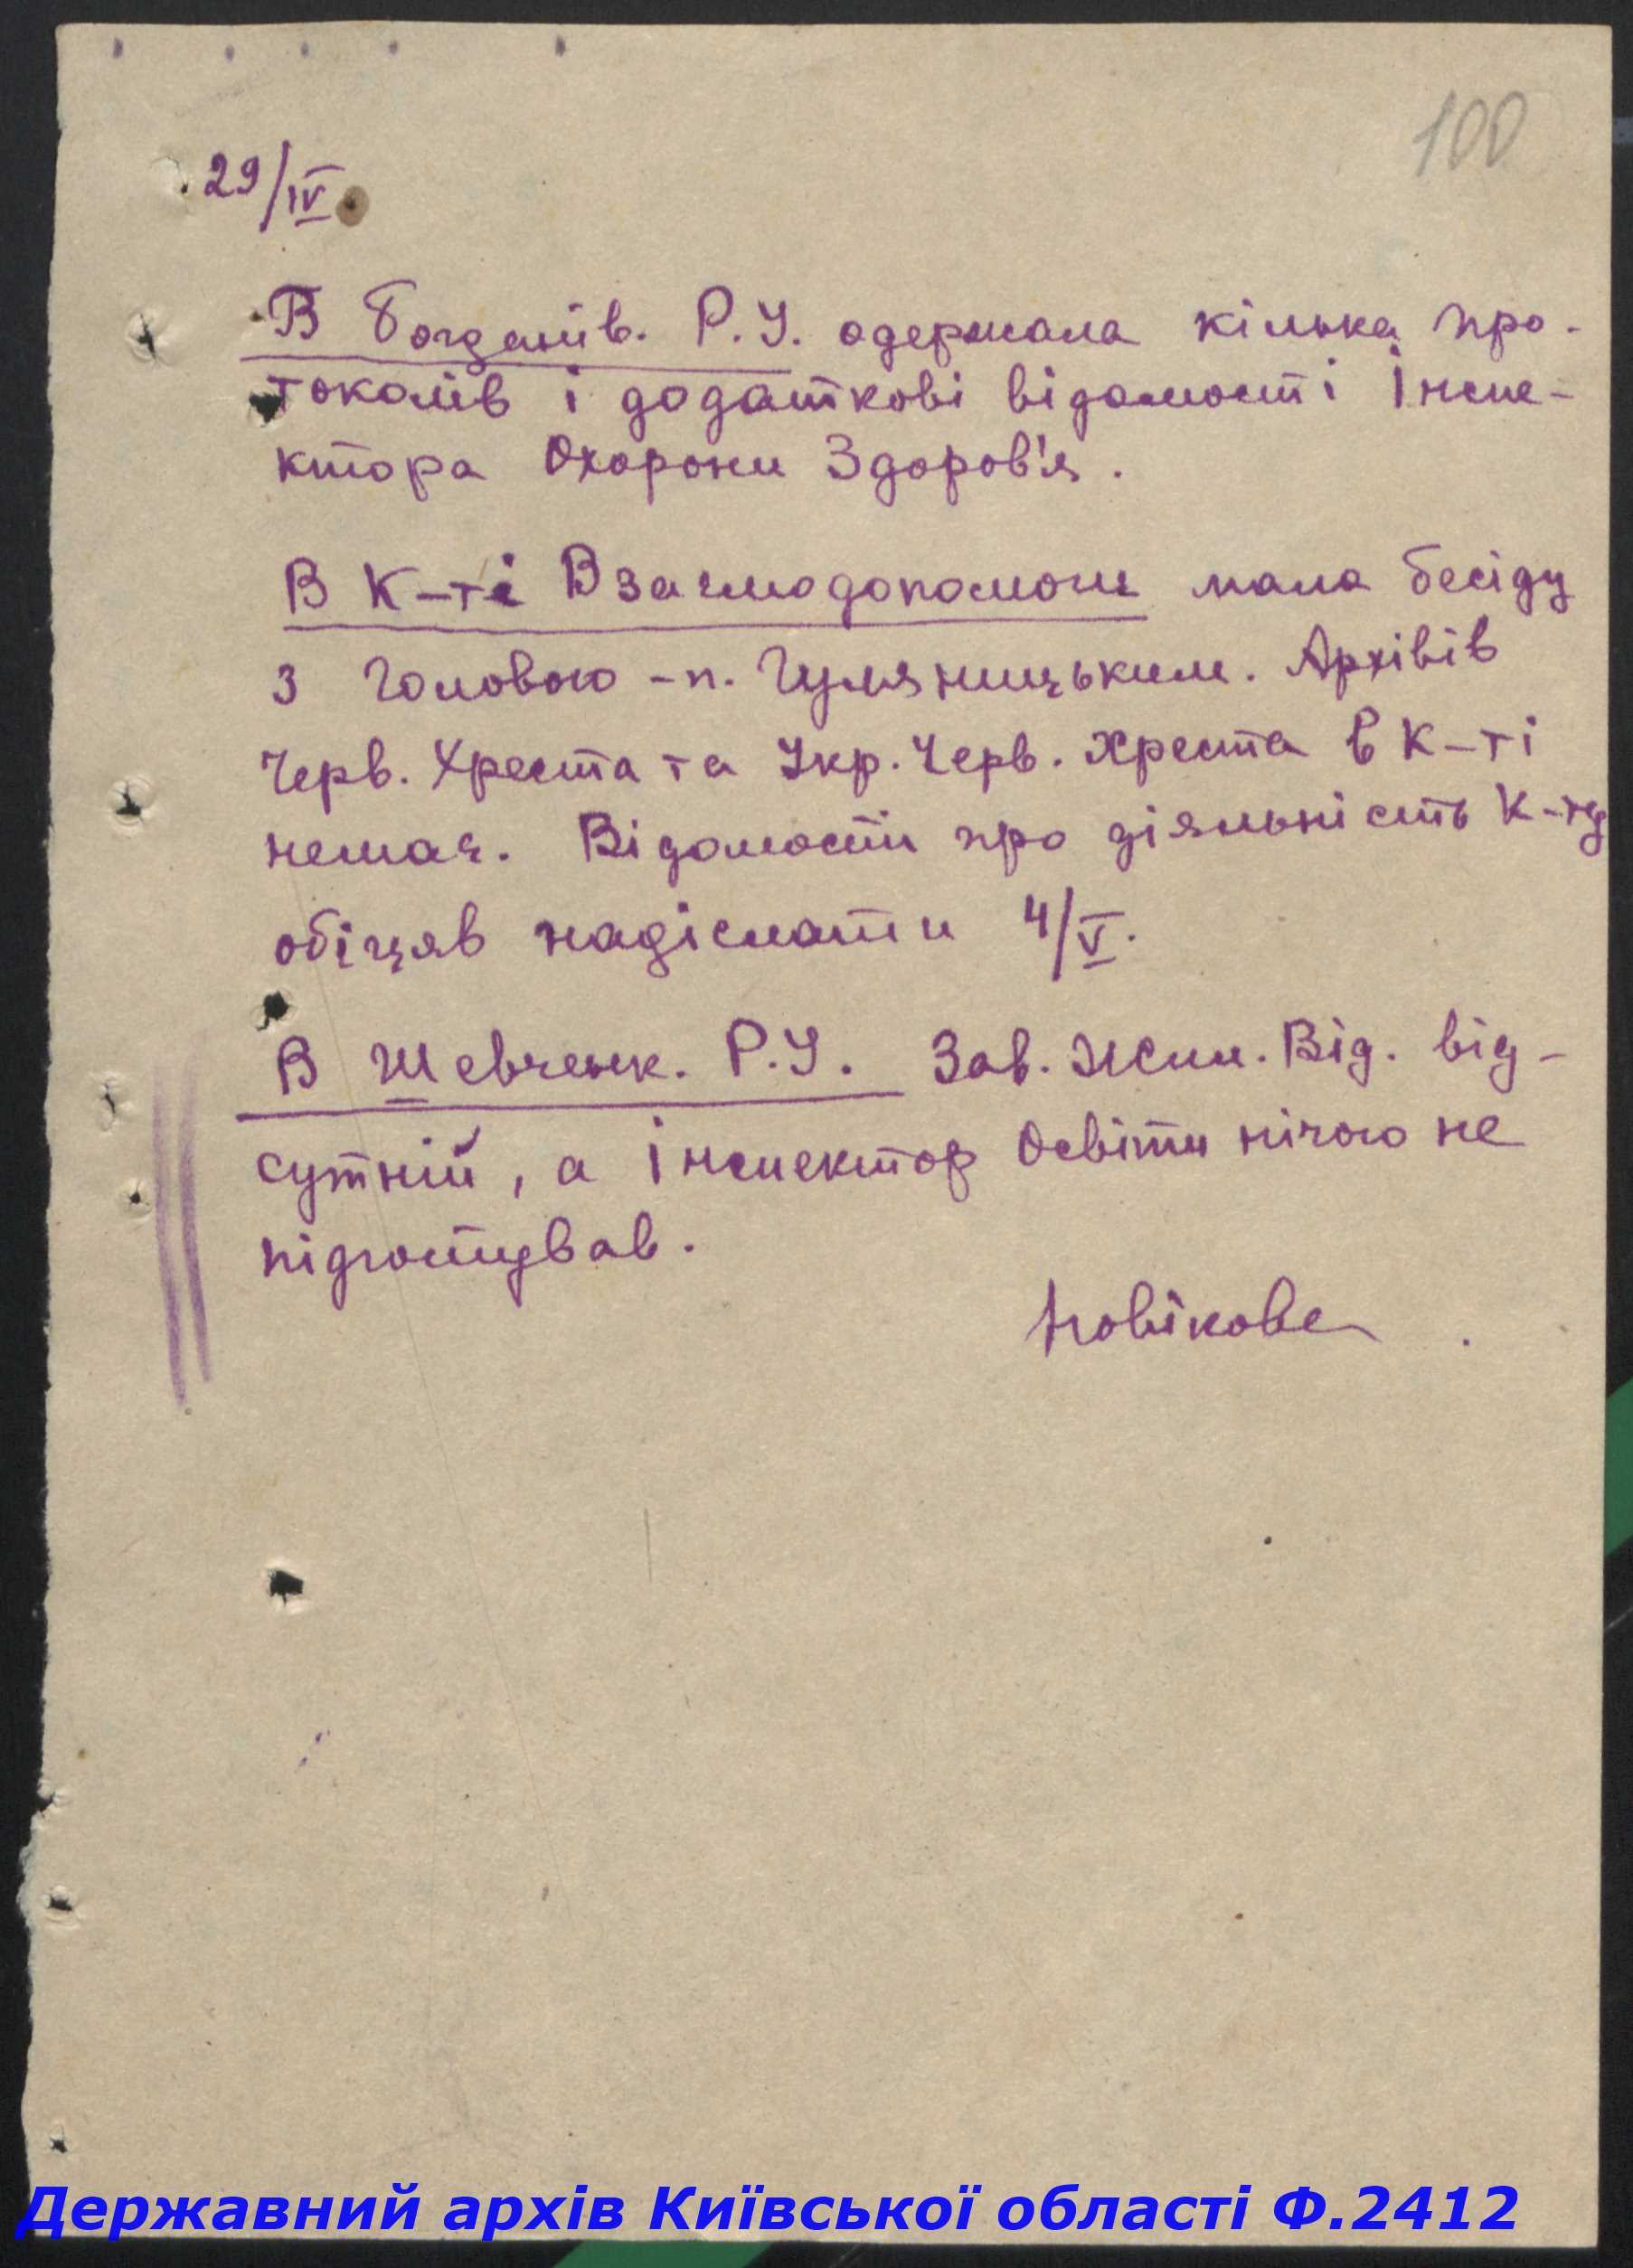 100
29/IV
В Богданів. Р.У. одержала кілька про-
токолів і додаткові відомості Інспе-
ктора Охорони Здоров'я.
В К-ті Взаємодопомоги мала бесіду
з Головою - п. Гуляницьким. Архівів
Черв. Хреста та Укр. Черв. Хреста в К-ті
немає. Відомости про діяльність К-ту
обіцяв надіслати 4/V.
В Шевченк. Р.У. Зав. Жит. Від. від-
сутній, а Інспектор Освіти нічого не
підготував.
Новікова
Державний архів Київської області Ф.2412